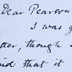 Dear Pearson
I was g
tter, though
ind that it